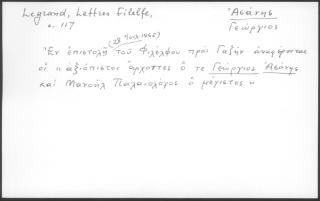 Legrand, Lettres Filelfe, Ἀσάνης
σ. 117 Γεώργιος
(28 Ἰουλ 1465)
Ἐν ἐπιστολῇ τοῦ Φιλέλφου πρὸς Γαζῆν ἀναφέρονται
οἱ «ἀξιόπιστοι ἄρχοντες ὅ τε Γεώργιος Ἀσάνης
καὶ Μανουὴλ Παλαιολόγος ὁ μέγιστος»